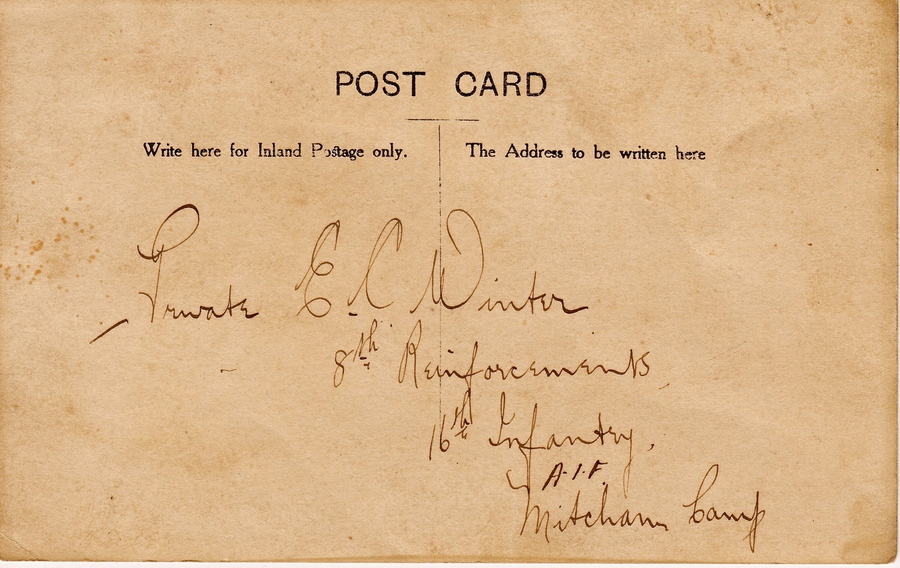 POST CARD
Write here for Inland Postage only.
The Address to be written here
Private E. C Winter
8th Reinforcements,
16th Infantry,
A.I.F.
Mitcham Camp